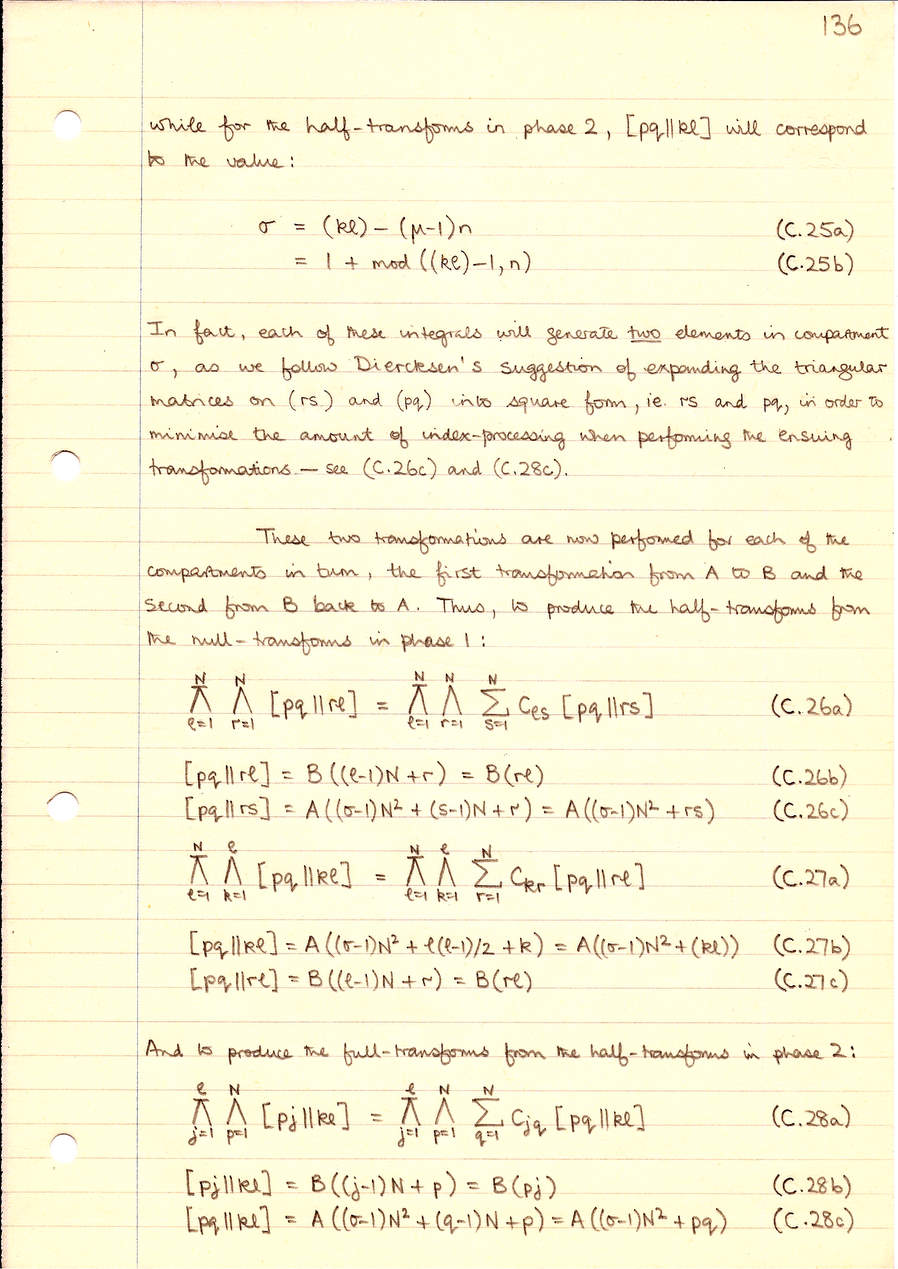 136
while for the half-transforms in phase 2, [pq||kℓ] will correspond
to the value:
σ = (kℓ) – (μ-1)n (C.25a)
= 1 + mod ((kℓ)-1, n) (C.25b)
In fact, each of these integrals will generate two elements in compartment
σ, as we follow Diercksen's suggestion of expanding the triangular
matrices on (rs) and (pq) into square form, ie. rs and pq, in order to
minimise the amount of index-processing when performing the ensuing
transformations — see (C.26c) and (C.28c).
These two transformations are now performed for each of the
compartments in turn, the first transformation from A to B and the
second from B back to A. Thus, to produce the half-transforms from
the null-transforms in phase 1:
N Λ ℓ=1 N Λ r=1 [pq||rℓ] = N Λ ℓ=1 N Λ r=1 N Σ s=1 Cℓs [pq||rs] (C.26a)
[pq||rℓ] = B((ℓ-1)N+r) = B(rℓ) (C.26b)
[pq||rs] = A((σ-1)N² + (s-1)N + r) = A((σ-1)N² + rs) (C.26c)
N Λ ℓ=1 ℓ Λ k=1 [pq||kℓ] = N Λ ℓ=1 ℓ Λ k=1 N Σ r=1 Ckr [pq||rℓ] (C.27a)
[pq||kℓ] = A((σ-1)N² + ℓ(ℓ-1)/2 + k) = A((σ-1)N² + (kℓ)) (C.27b)
[pq||rℓ] = B((ℓ-1)N + r) = B(rℓ) (C.27c)
And to produce the full-transforms from the half-transforms in phase 2:
ℓ Λ j=1 N Λ p=1 [pj||kℓ] = ℓ Λ j=1 N Λ p=1 N Σ q=1 Cjq [pq||kℓ] (C.28a)
[pj||kℓ] = B((j-1)N + p) = B(pj) (C.28b)
[pq||kℓ] = A((σ-1)N² + (q-1)N + p) = A((σ-1)N² + pq) (C.28c)